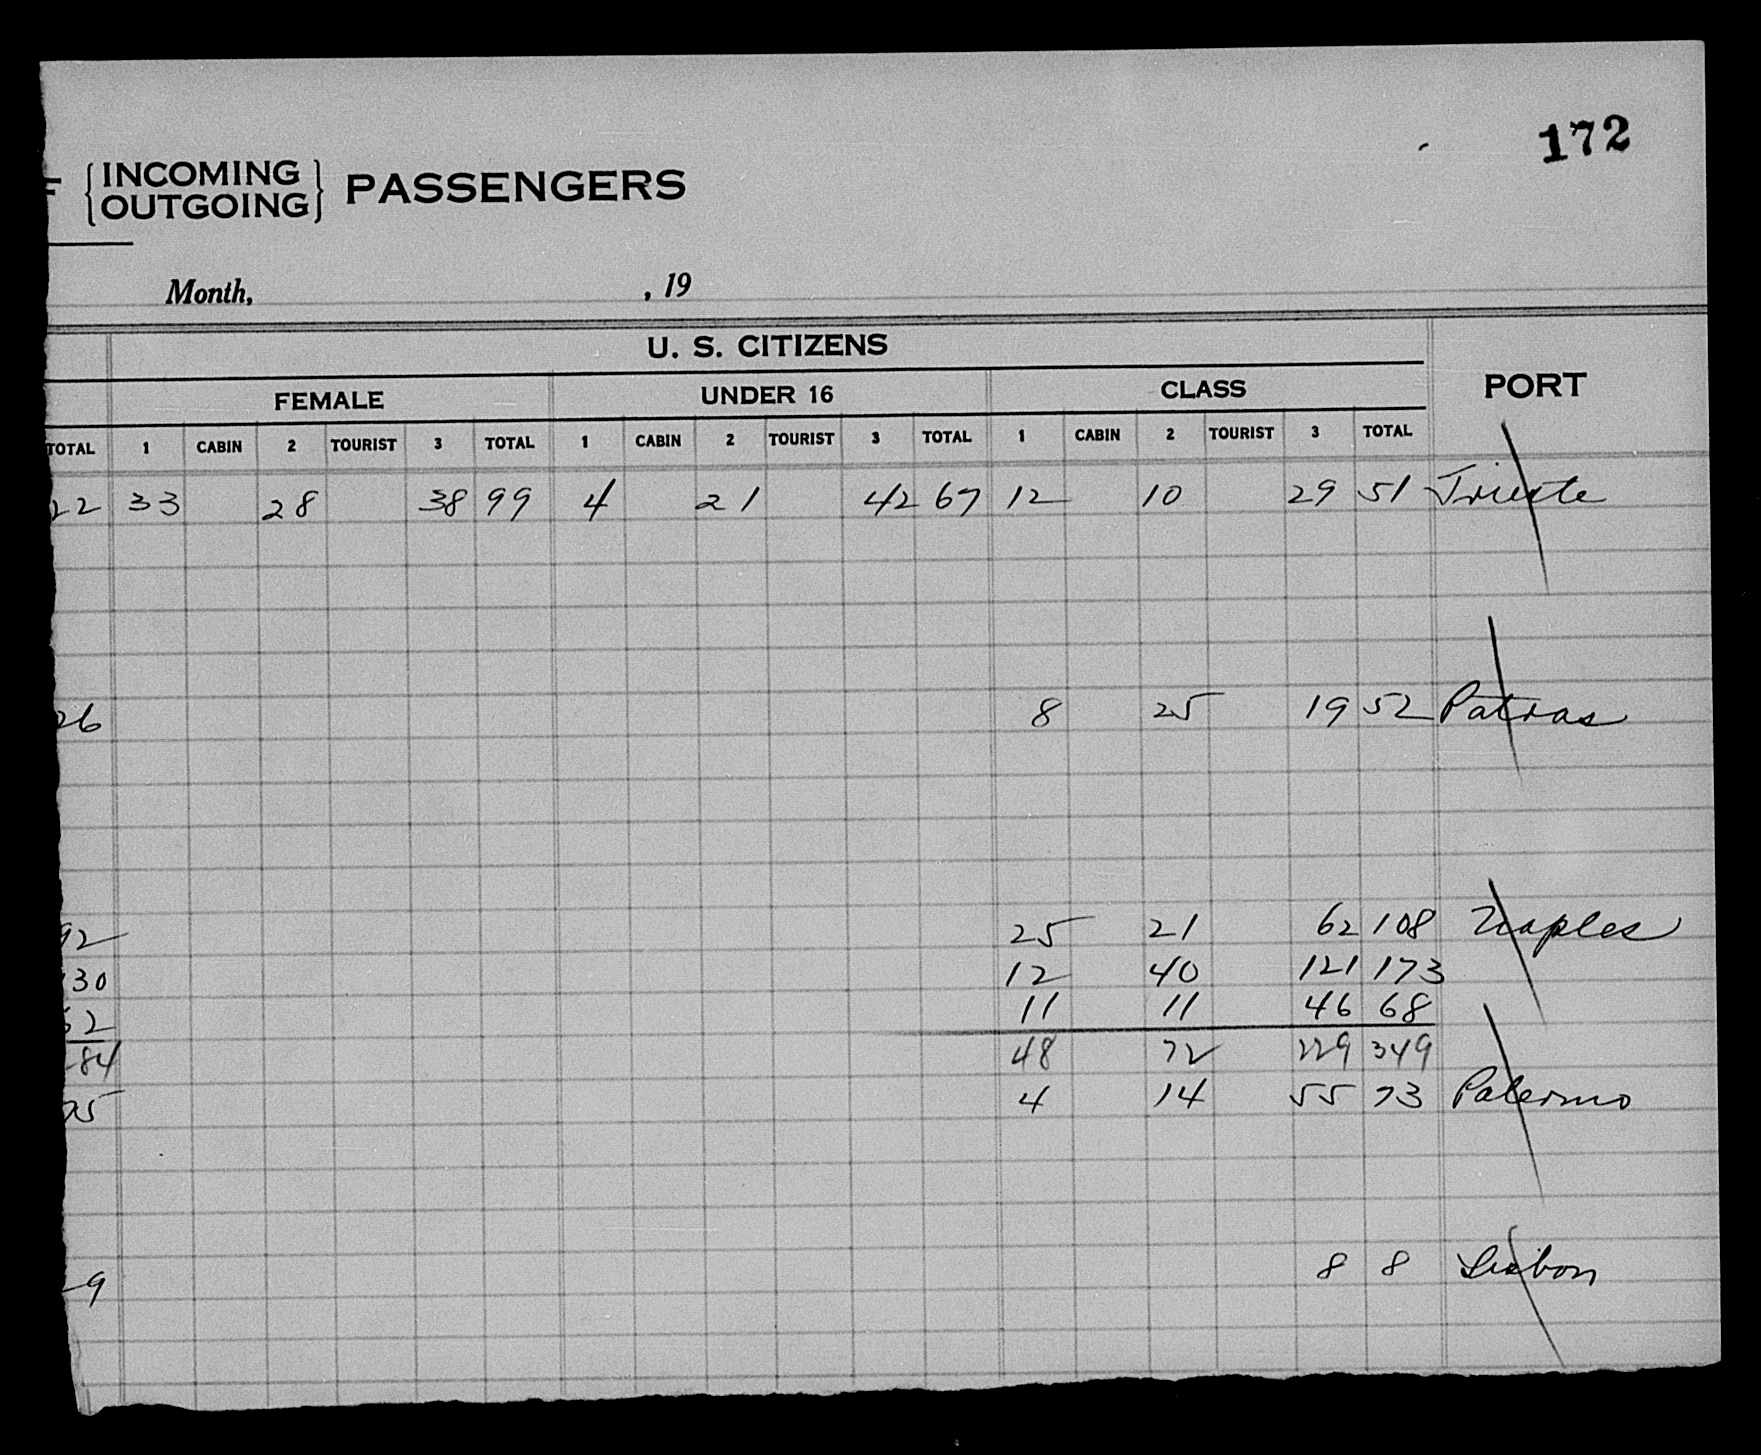 172
{INCOMING
OUTGOING} PASSENGERS
Month, , 19
U. S. CITIZENS
FEMALE UNDER 16 CLASS PORT
TOTAL 1 CABIN 2 TOURIST 3 TOTAL 1 CABIN 2 TOURIST 3 TOTAL 1 CABIN 2 TOURIST 3 TOTAL
22 33 28 38 99 4 21 42 67 12 10 29 51 Trieste
26 8 25 19 52 Patras
92 25 21 62 108 Naples
30 12 40 121 173
62 11 11 46 68
84 48 72 229 349
75 4 14 55 73 Palermo
9 8 8 Lisbon